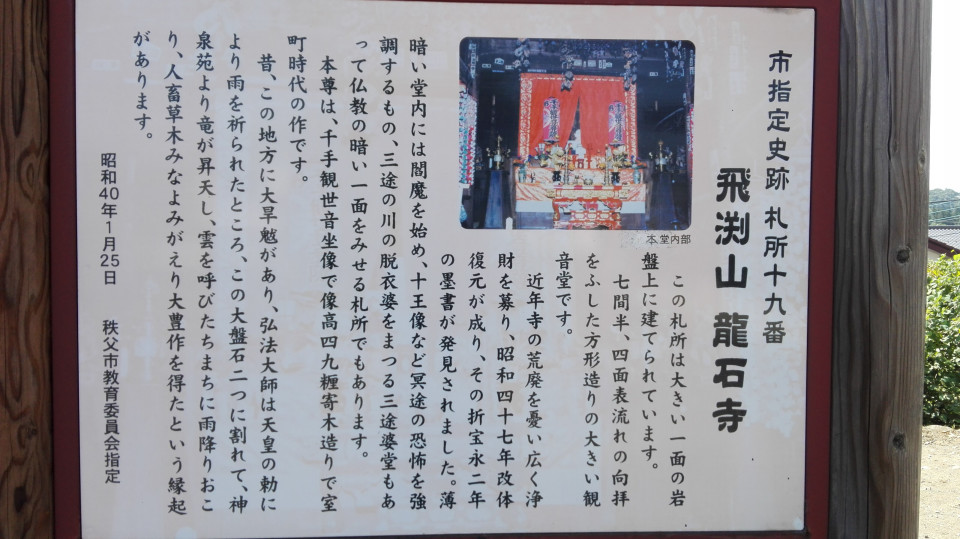 市指定史跡 札所十九番
飛渕山 龍石寺
本堂内部
この札所は大きい一面の岩
盤上に建てられています。
七間半、四面表流れの向拝
をふした方形造りの大きい観
音堂です。
近年寺の荒廃を憂い広く浄
財を募り、昭和四十七年改体
復元が成り、その折宝永二年
の墨書が発見されました。薄
暗い堂内には閻魔を始め、十王像など冥途の恐怖を強
調するもの、三途の川の脱衣婆をまつる三途婆堂もあ
って仏教の暗い一面をみせる札所でもあります。
本尊は、千手観世音坐像で像高四九糎寄木造りで室
町時代の作です。
昔、この地方に大旱魃があり、弘法大師は天皇の勅に
より雨を祈られたところ、この大盤石二つに割れて、神
泉苑より竜が昇天し、雲を呼びたちまちに雨降りおこ
り、人畜草木みなよみがえり大豊作を得たという縁起
があります。
昭和40年1月25日 秩父市教育委員会指定